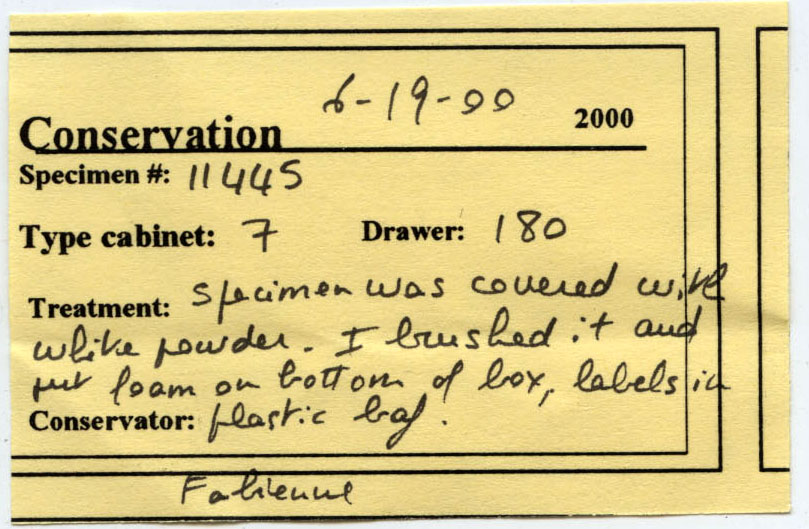 6-19-00
Conservation 2000
Specimen #: 11445
Type cabinet: 7 Drawer: 180
Treatment: Specimen was covered with
white powder. I brushed it and
put foam on bottom of box, labels in
Conservator: plastic bag.
Fabienne